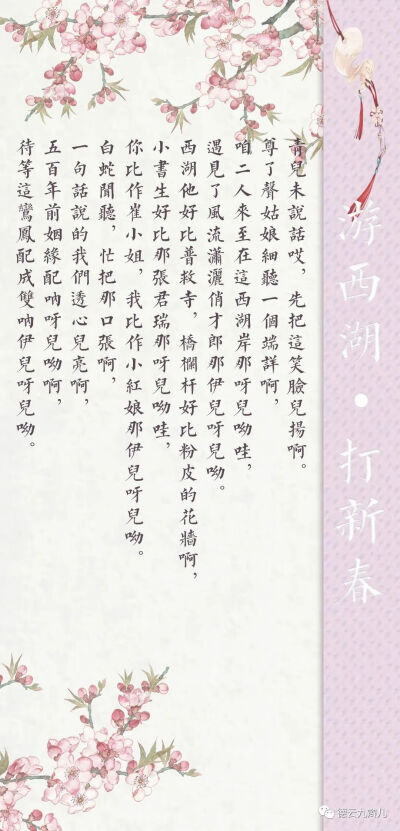 游西湖·打新春
青兒未說話哎，先把這笑臉兒揚啊。
尊了聲姑娘細聽一個端詳啊，
咱二人來至在這西湖岸那呀兒呦哇，
遇見了風流瀟灑俏才郎那伊兒呀兒呦。
西湖他好比普救寺，橋欄杆好比粉皮的花牆啊，
小書生好比那張君瑞那呀兒呦哇，
你比作崔小姐，我比作小紅娘那伊兒呀兒呦。
白蛇聞聽，忙把那口張啊，
一句話說的我們透心兒亮啊，
五百年前姻緣配吶呀兒呦啊，
待等這鸞鳳配成雙吶伊兒呀兒呦。
德云九商儿